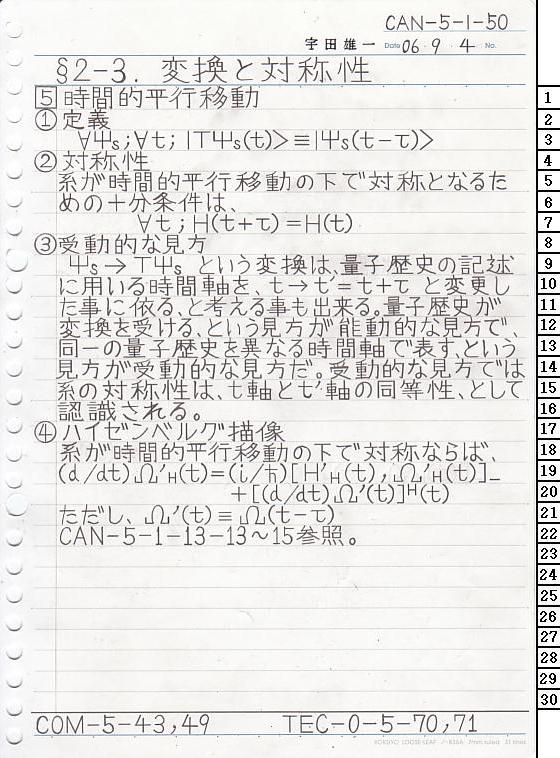 CAN-5-1-50
宇田雄一 Date 06・9・4 No.
§2-3. 変換と対称性
5 時間的平行移動
① 定義
∀Ψs;∀t; |TΨs(t)> ≡ |Ψs(t-τ)>
② 対称性
系が時間的平行移動の下で対称となるた
めの十分条件は、
∀t; H(t+τ) = H(t)
③ 受動的な見方
Ψs → TΨs という変換は、量子歴史の記述
に用いる時間軸を、t→t'=t+τ と変更し
た事に依る、と考える事も出来る。量子歴史が
変換を受ける、という見方が能動的な見方で、
同一の量子歴史を異なる時間軸で表す、という
見方が受動的な見方だ。受動的な見方では
系の対称性は、t軸とt'軸の同等性、として
認識される。
④ ハイゼンベルグ描像
系が時間的平行移動の下で対称ならば、
(d/dt)Ω'H(t)=(i/ħ)[H'H(t), Ω'H(t)]_
+[(d/dt)Ω'(t)]ᴴ(t)
ただし、Ω'(t) ≡ Ω(t-τ)
CAN-5-1-13-13~15参照。
COM-5-43,49 TEC-0-5-70,71
KOKUYO LOOSE-LEAF ノ-836A 7mm ruled 31 lines
1
2
3
4
5
6
7
8
9
10
11
12
13
14
15
16
17
18
19
20
21
22
23
24
25
26
27
28
29
30